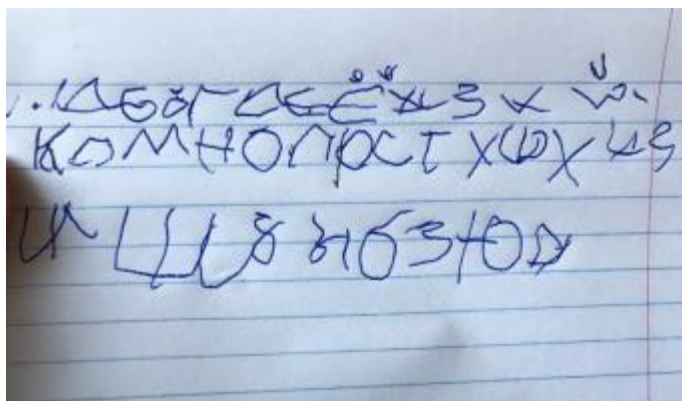 А Б В Г Д Е Ё Ж З И Й
К Л М Н О П Р С Т У Ф Х Ц
Ш Ъ Ы Ь Э Ю Я